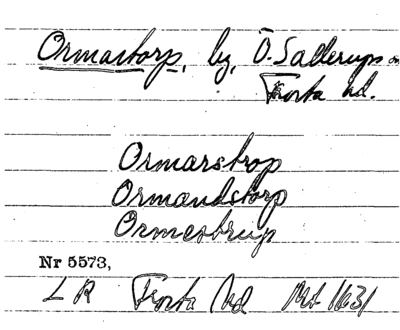 Ormastorp, by, Ö. Sallerups sn
Frosta hd.
Ormarstrop
Ormandstorp
Ormestrup
Nr 5573,
L R Frosta hd 1631